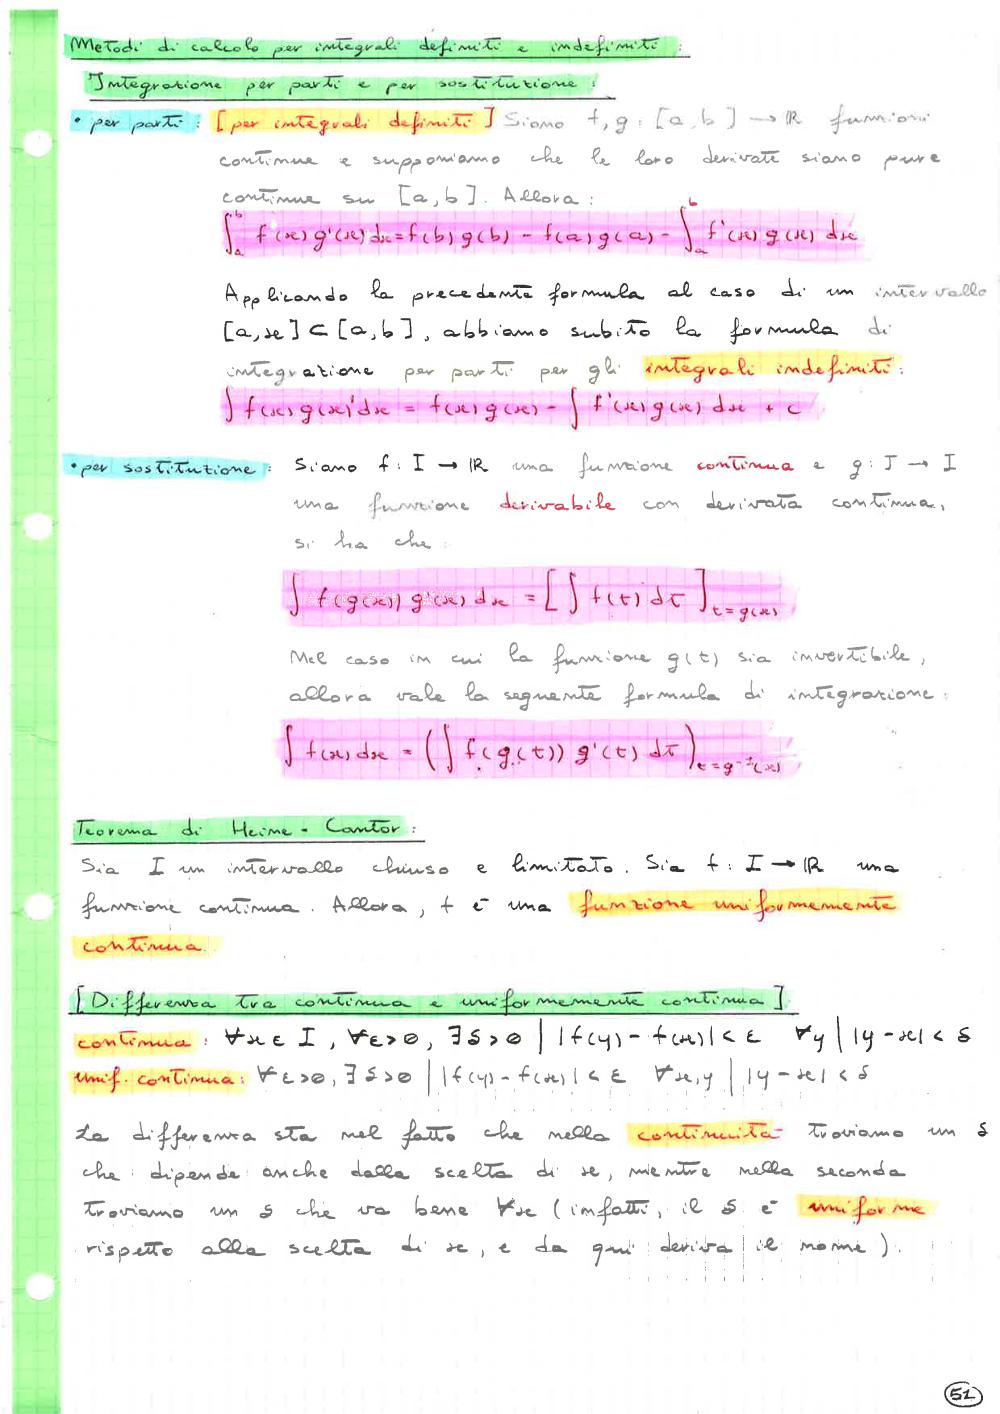 Metodi di calcolo per integrali definiti e indefiniti:
Integrazione per parti e per sostituzione:
• per parti: [per integrali definiti] Siano f,g: [a,b] → ℝ funzioni
continue e supponiamo che le loro derivate siano pure
continue su [a,b]. Allora:
∫_a^b f(x) g'(x) dx = f(b) g(b) - f(a) g(a) - ∫_a^b f'(x) g(x) dx
Applicando la precedente formula al caso di un intervallo
[a,x] ⊂ [a,b], abbiamo subito la formula di
integrazione per parti per gli integrali indefiniti:
∫ f(x) g(x)' dx = f(x) g(x) - ∫ f'(x) g(x) dx + c
• per sostituzione: Siano f: I → ℝ una funzione continua e g: J → I
una funzione derivabile con derivata continua,
si ha che:
∫ f(g(x)) g'(x) dx = [∫ f(t) dt]_{t=g(x)}
Nel caso in cui la funzione g(t) sia invertibile,
allora vale la seguente formula di integrazione:
∫ f(x) dx = (∫ f(g(t)) g'(t) dt)_{t=g⁻¹(x)}
Teorema di Heine - Cantor:
Sia I un intervallo chiuso e limitato. Sia f: I → ℝ una
funzione continua. Allora, f è una funzione uniformemente
continua.
[Differenza tra continua e uniformemente continua]
continua: ∀x ∈ I, ∀ε>0, ∃δ>0 | |f(y) - f(x)| < ε ∀y | |y-x| < δ
unif. continua: ∀ε>0, ∃δ>0 | |f(y) - f(x)| < ε ∀x,y | |y-x| < δ
La differenza sta nel fatto che nella continuità troviamo un δ
che dipende anche dalla scelta di x, mentre nella seconda
troviamo un δ che va bene ∀x (infatti, il δ è uniforme
rispetto alla scelta di x, e da qui deriva il nome).
51